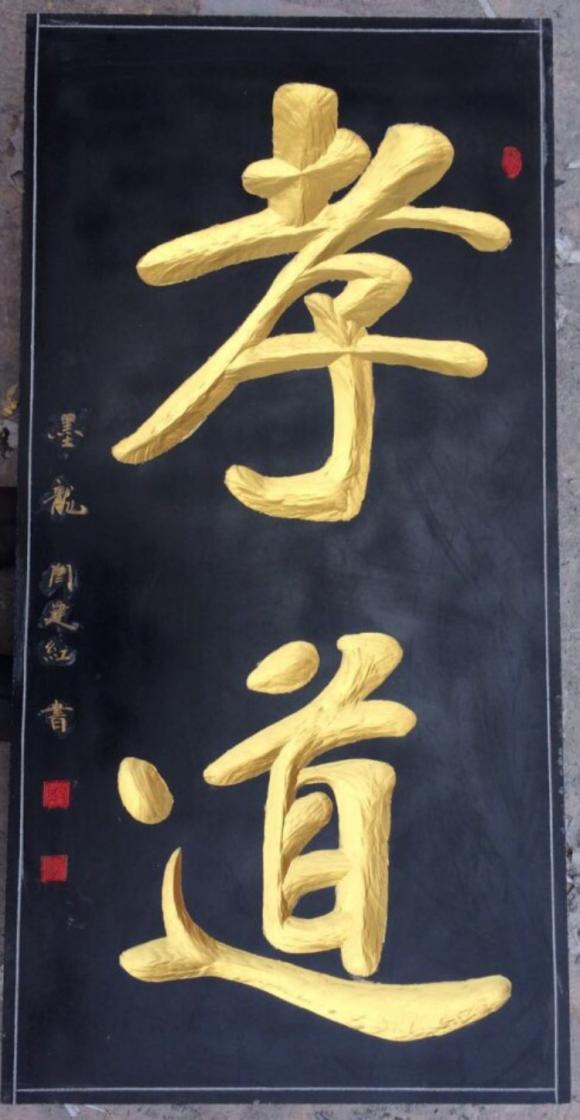 孝道
墨龍 建紅 書